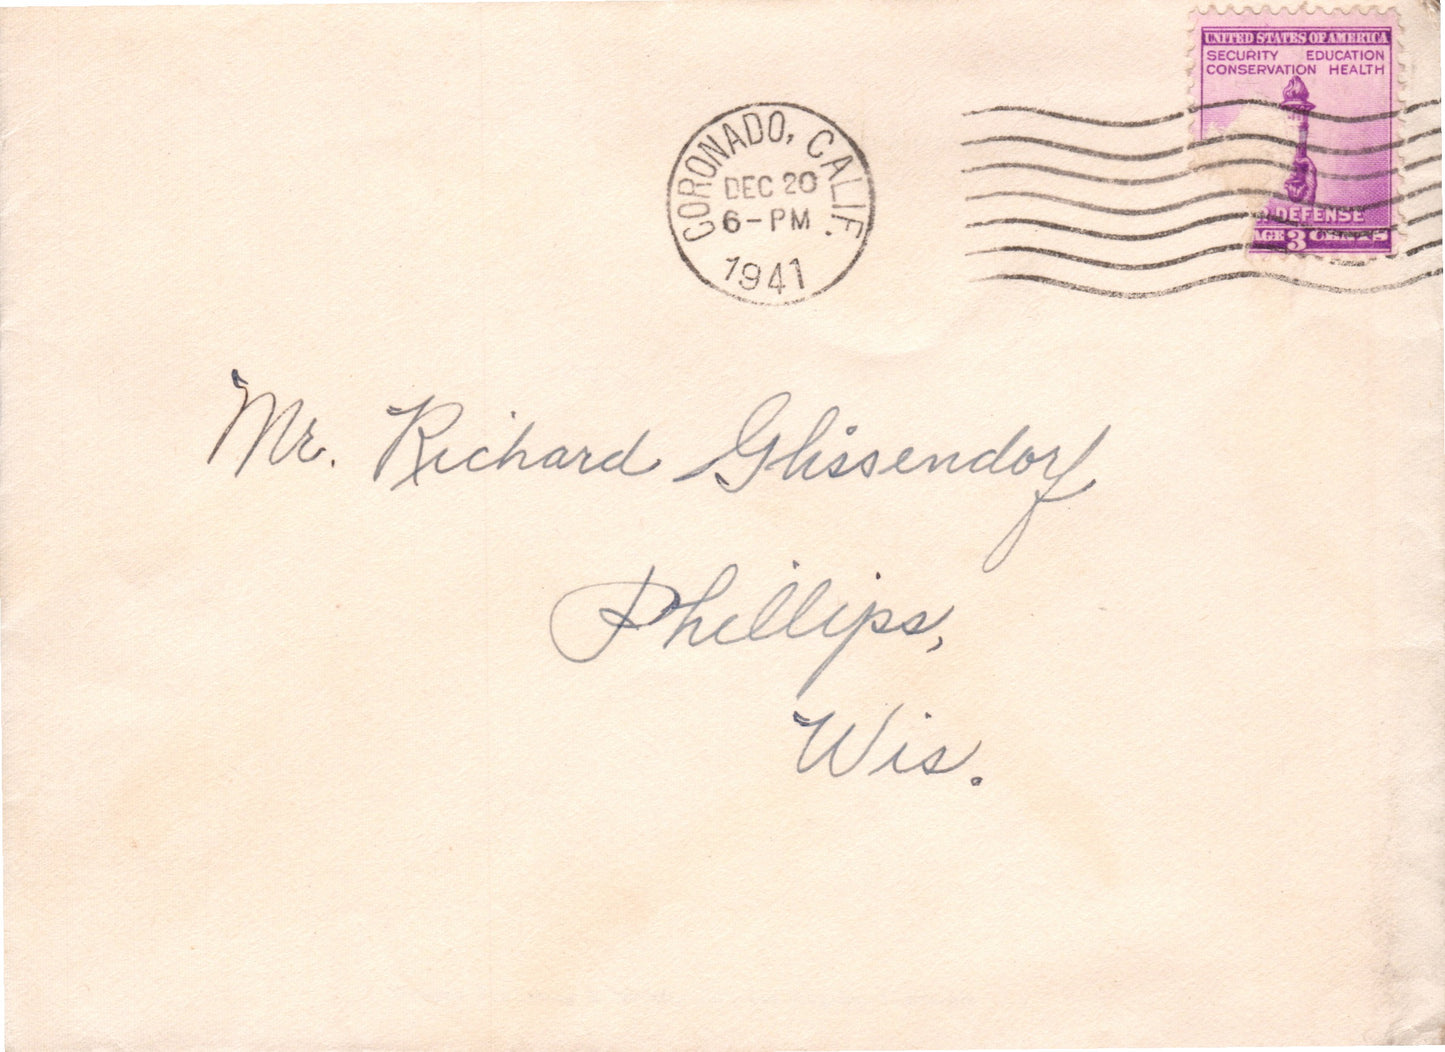 CORONADO, CALIF.
DEC 20
6-PM
1941
UNITED STATES OF AMERICA
SECURITY EDUCATION
CONSERVATION HEALTH
DEFENSE
AGE 3 CENTS
Mr. Richard Glissendorf
Phillips,
Wis.